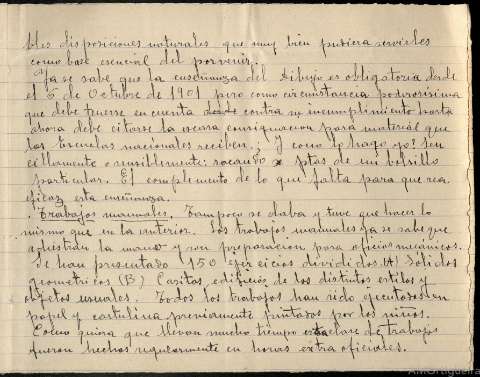 bles disposiciones naturales que muy bien pudiera servirles
como base esencial del porvenir.
Ya se sabe que la enseñanza del Dibujo es obligatoria desde
el 6 de Octubre de 1901 pero como circunstancia poderosísima
que debe tenerse en cuenta desde contra su incumplimiento hasta
ahora debe citarse la escasa consignacion para material que
las Escuelas nacionales reciben. ¿Y como lo hago yo? Sen
cillamente o sensiblemente: sacando ptas de mi bolsillo
particular. El complemento de lo que falta para que sea
eficaz esta enseñanza.
Trabajos manuales. Tampoco se daba y tuve que hacer lo
mismo que en la anterior. Los trabajos manuales ya se sabe que
adiestran la mano y son preparacion para oficios mecánicos.
Se han presentado 150 ejercicios divididos (A) Sólidos
geometricos (B) Casitas, edificios de los distintos estilos y
objetos usuales. Todos los trabajos han sido ejecutados en
papel y cartulina previamente pintados por los niños.
Como quiera que llevan mucho tiempo esta clase de trabajos
fueron hechos regularmente en horas extra oficiales.
AMOrtigueira